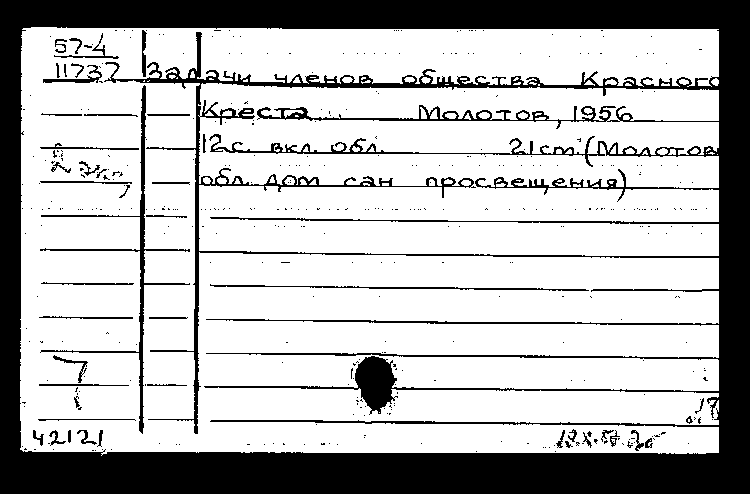 57-4
11737 Задачи членов общества Красного
Креста... Молотов, 1956
12с. вкл. обл. 21cm. (Молотов
2 экз,
обл. дом сан просвещения)
42121
18